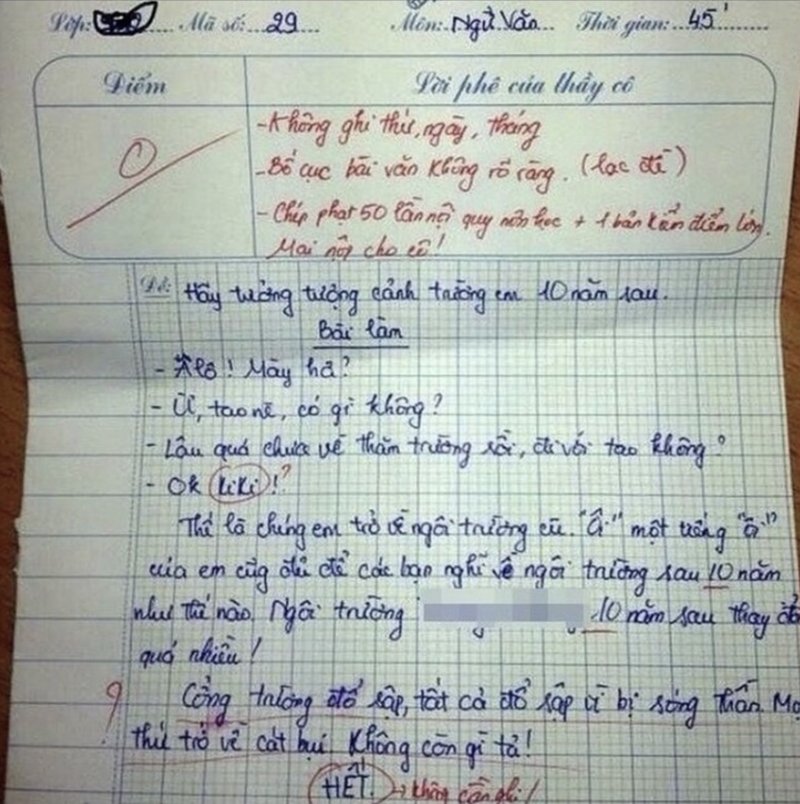 Lớp: Mã số: 29 Môn: Ngữ Văn Thời gian: 45'
Điểm Lời phê của thầy cô
0
- Không ghi thứ, ngày, tháng
- Bố cục bài văn không rõ ràng. (lạc đề)
- Chép phạt 50 lần nội quy môn học + 1 bản kiểm điểm lớn.
Mai nộp cho cô!
Đề: Hãy tưởng tượng cảnh trường em 10 năm sau.
Bài làm
- Alô! Mày hả?
- Ừ, tao nè, có gì không?
- Lâu quá chưa về thăm trường rồi, đi với tao không?
- Ok kiki! ?
Thế là chúng em trở về ngôi trường cũ. "Ôi" một tiếng "ôi"
của em cũg đủ để các bạn nghĩ về ngôi trường sau 10 năm
như thế nào. Ngôi trường 10 năm sau thay đổ
quá nhiều!
? Cổng trường đổ sập, tất cả đổ sập vì bị sóng thần. Mọ
thứ trở về cát bụi không còn gì tả!
HẾT. → không cần ghi!